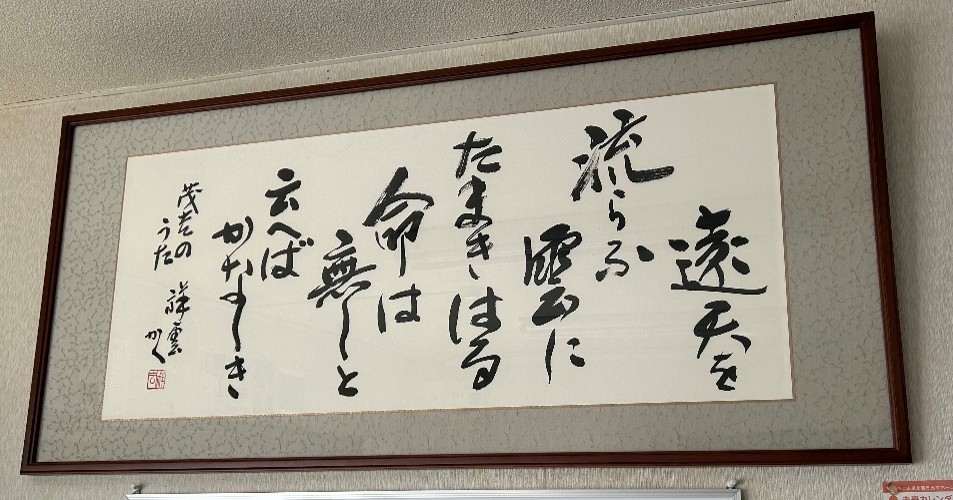 遠天を
流らふ
雲に
たまきはる
命は
無しと
云へば
かなしき
茂吉の
うた
祥雲
かく
カレンダ